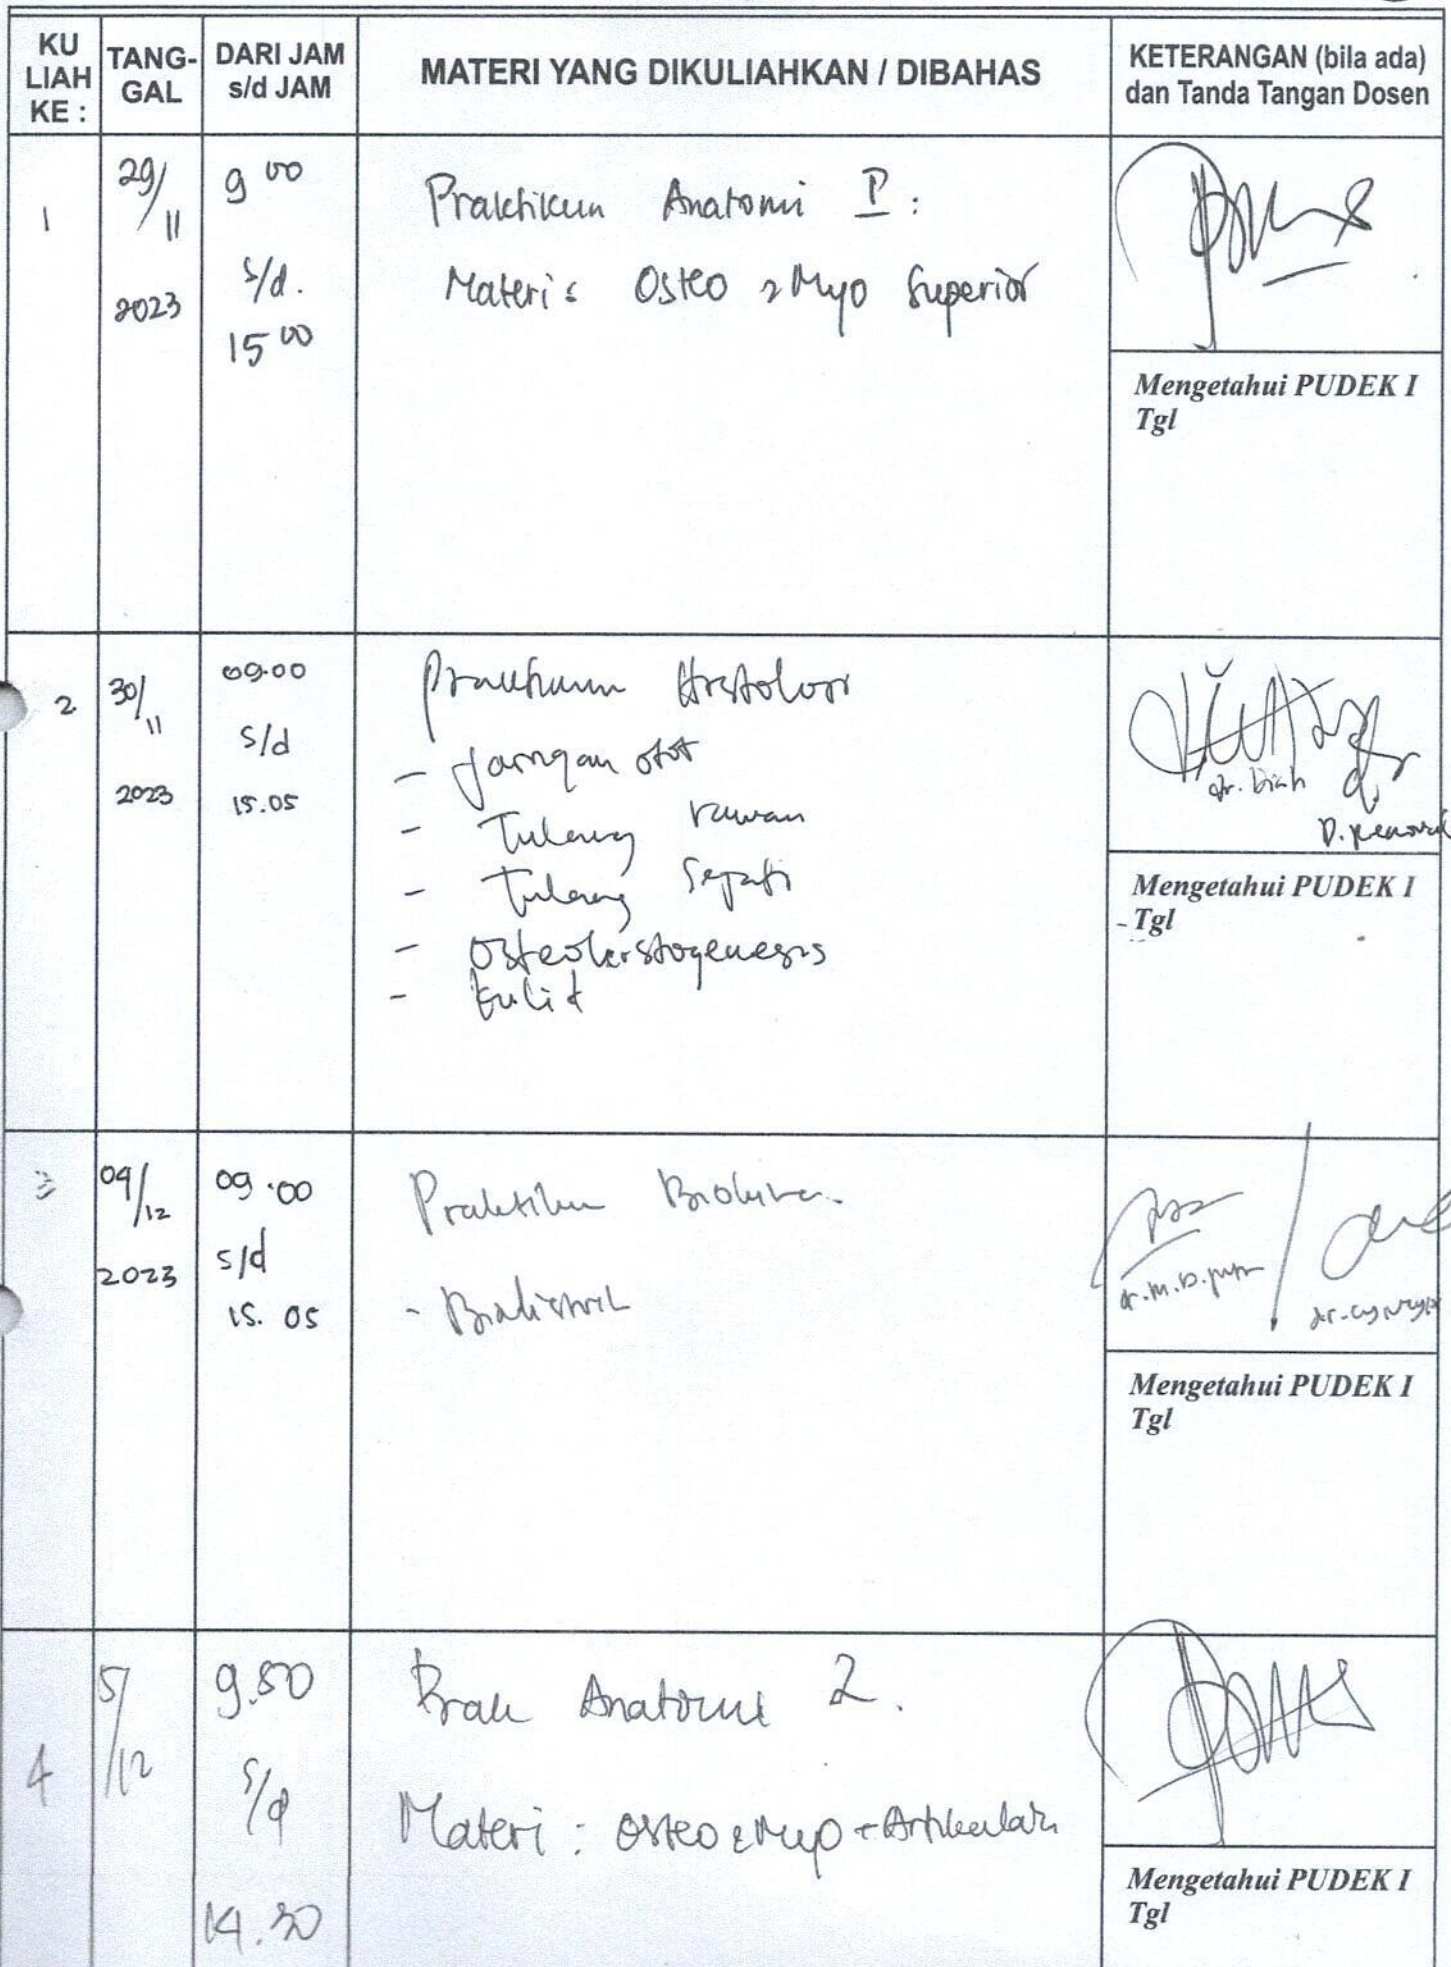 KU LIAH KE :
TANG-GAL
DARI JAM s/d JAM
MATERI YANG DIKULIAHKAN / DIBAHAS
KETERANGAN (bila ada) dan Tanda Tangan Dosen
1
29/11
2023
9 00
s/d.
15 00
Praktikum Anatomi I :
Materi : Osteo & Myo Superior
Mengetahui PUDEK I
Tgl
2
30/11
2023
09.00
s/d
15.05
Praktikum Histologi
- Jaringan otot
- Tulang rawan
- Tulang Sejati
- Osteohistogenesis
- Kulit
dr. Diah
Mengetahui PUDEK I
Tgl
3
04/12
2023
09.00
s/d
15.05
Praktikum Biokimia.
Mengetahui PUDEK I
Tgl
4
5/12
s/d
14.30
Prak Anatomi 2.
Materi : Osteo & Myo + Artikulasi
Mengetahui PUDEK I
Tgl